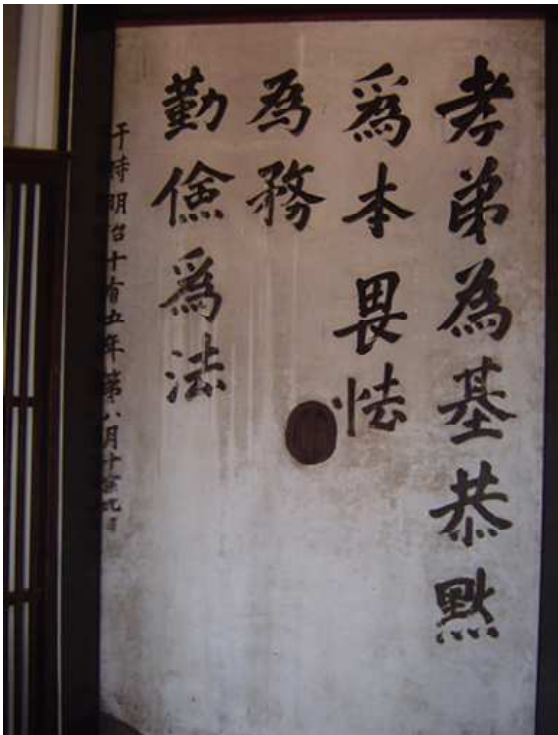 孝弟為基恭黙
爲本畏怯
為務
勤儉爲法
于時明治十有五年第八月十日